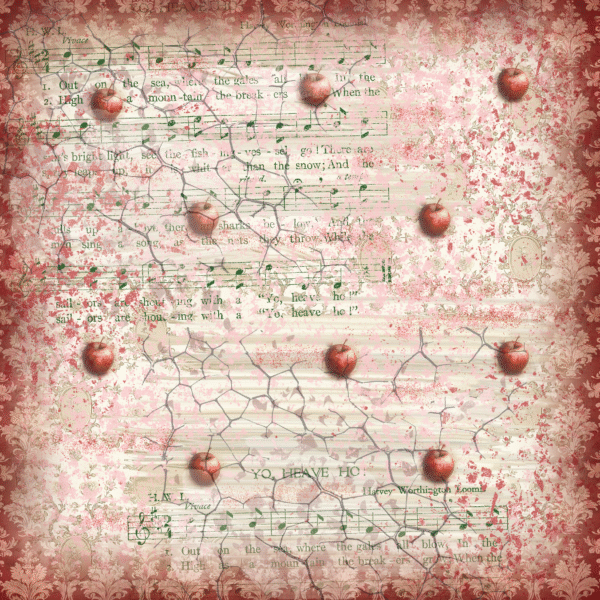 YO, HEAVE HO
H. W. L.
Vivace
1. Out on the sea, where the gales all in the
2. High a moun-tain, the break-ers When the
bright light, see the fish-ing-ves-sel go! There are
up, it whit-er than the snow; And the
up a there sharks be-low! And the
sing a song, as the nets they throw, While the
sail-ors are shout-ing, with a "Yo, heave ho!"
sail-ors are shout-ing, with a "Yo, heave ho!"
YO, HEAVE HO
H. W. L.
Harvey Worthington Loomis
Vivace
1. Out on the sea, where the gales all blow, In the
2. High as a moun-tain the break-ers grow When the